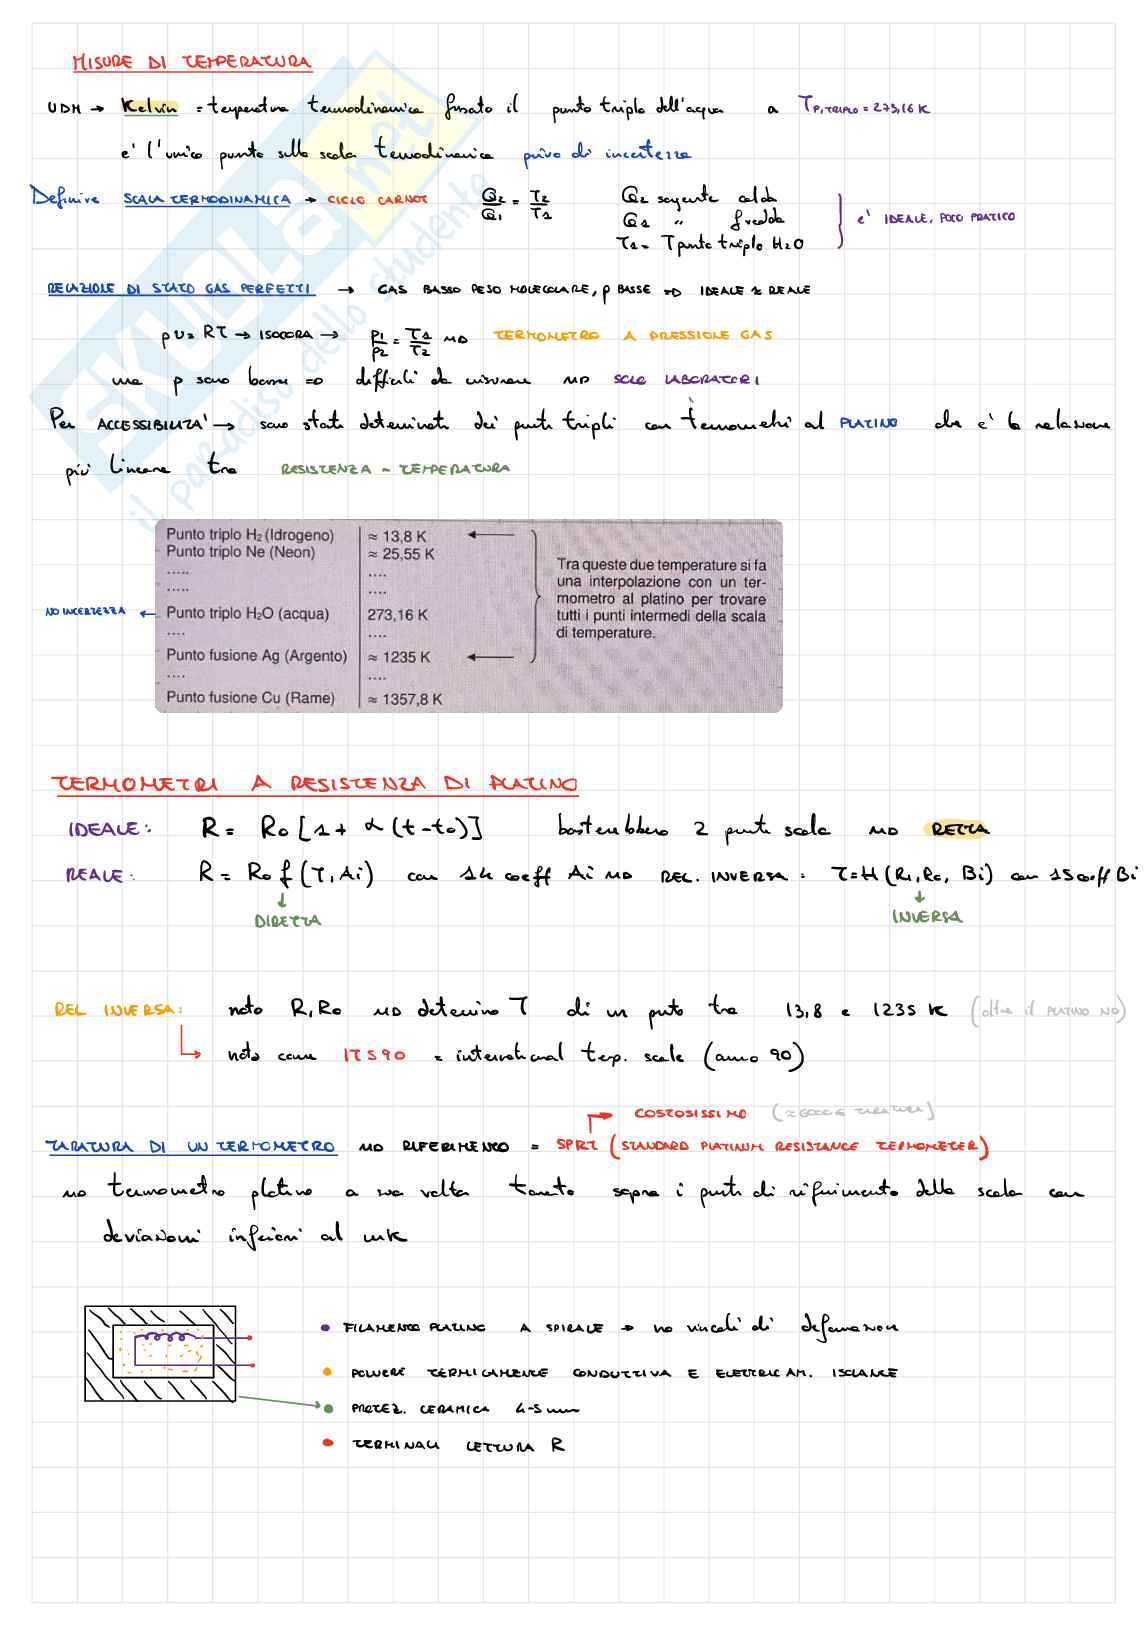 MISURE DI TEMPERATURA
UDM → Kelvin = temperatura termodinamica fissato il punto triplo dell'acqua a T P,TRIPLO = 273,16 K
e' l'unico punto sulla scala termodinamica privo di incertezza
Definire SCALA TERMODINAMICA → CICLO CARNOT Q2/Q1 = T2/T1 Q2 sorgente calda
Q1 " fredda
T1 = T punto triplo H2O
e' IDEALE, POCO PRATICO
RELAZIONE DI STATO GAS PERFETTI → GAS BASSO PESO MOLECOLARE, p BASSE => IDEALE ≈ REALE
pv = RT → ISOCORA → p1/p2 = T1/T2 → TERMOMETRO A PRESSIONE GAS
ma p sono basse => difficili da misurare → SOLO LABORATORI
Per ACCESSIBILITA' → sono stati determinati dei punti tripli con termometri al PLATINO che e' la relazione
più lineare tra RESISTENZA - TEMPERATURA
Punto triplo H2 (Idrogeno) ≈ 13,8 K
Punto triplo Ne (Neon) ≈ 25,55 K
..... ....
..... ....
NO INCERTEZZA ← Punto triplo H2O (acqua) 273,16 K
.... ....
Punto fusione Ag (Argento) ≈ 1235 K
.... ....
Punto fusione Cu (Rame) ≈ 1357,8 K
Tra queste due temperature si fa
una interpolazione con un ter-
mometro al platino per trovare
tutti i punti intermedi della scala
di temperature.
TERMOMETRI A RESISTENZA DI PLATINO
IDEALE: R = R0 [1 + α (t-t0)] basterebbero 2 punti scala → RETTA
REALE: R = R0 f (T, Ai) con 14 coeff Ai → REL. INVERSA: T=H (R1,R0, Bi) con 15 coeff Bi
DIRETTA INVERSA
REL INVERSA: noto R, R0 → determino T di un punto tra 13,8 e 1235 K (oltre il PLATINO NO)
nota come ITS90 = international temp. scale (anno 90)
COSTOSISSIMO (≈6000 € TARATURA)
TARATURA DI UN TERMOMETRO → RIFERIMENTO = SPRT (STANDARD PLATINUM RESISTANCE TERMOMETER)
→ termometro platino a sua volta tarato sopra i punti di riferimento della scala con
deviazioni inferiori al mK
• FILAMENTO PLATINO A SPIRALE → no vincoli di deformazione
• POLVERE TERMICAMENTE CONDUTTIVA E ELETTRICAM. ISOLANTE
• PROTEZ. CERAMICA 4-5 mm
• TERMINALI LETTURA R
SKUOLA.net
il paradiso dello studente